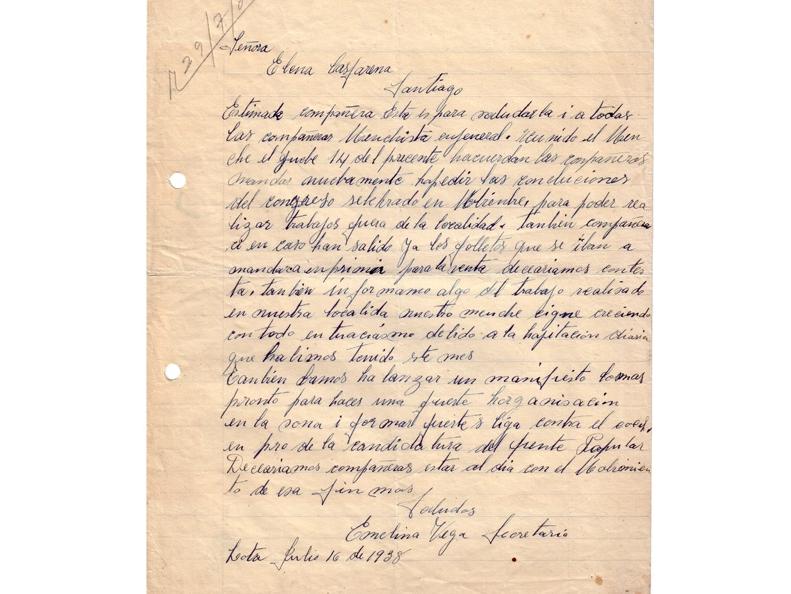 29/7/
Señora
Elena Caffarena
Santiago
Estimada compañera Esta es para saludarla i a todas
las compañeras Menchista en jeneral. Reunido el Men
che el juebe 14 del precente hacuerdan las compañeras
mandar nuebamente ha pedir las concluciones
del congreso selebrado en Nobienbre, para poder rea
lizar trabajos fuera de la localidad. tanbien compañera
si en caso han salido ya los folletos que se iban a
mandar a inprimir para la venta deceariamos contes
ta. tanbien informamo algo del trabajo realisado
en nuestra localida nuestro menche cigue creciendo
con todo entuciasmo debido a la hajitación diaria
que habimos tenido este mes
tanbien bamos ha lanzar un manifiesto lo mas
pronto para hacer una fuerte horganisación
en la sona i formar fuerte liga contra el
en pro de la candidatura del frente Popular
Deceariamos compañeras estar al dia con el Mobimien
to de esa sin mas
Saludos
Emelina Vega Secretaria
Lota Julio 16 de 1938